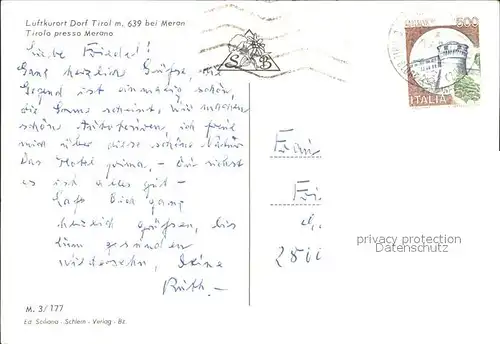 Luftkurort Dorf Tirol m. 639 bei Meran
Tirolo presso Merano
500
ITALIA
S B
Liebe Friedel!
Ganz herzlich Grüße, die
Gegend ist einmalig schön,
die Sonne scheint, wir machen
schöne Autotouren, ich freue
mich über diese schöne Natur
Das Hotel prima, - Du siehst
es ist alles gut -
Laß Dich ganz
herzlich grüßen, bis
zum gesunden
Wiedersehn, Deine
Ruth -
Frau
privacy protection
www.oldthing.com
M. 3/177
Ed. Sciliana - Schlern - Verlag - Bz.